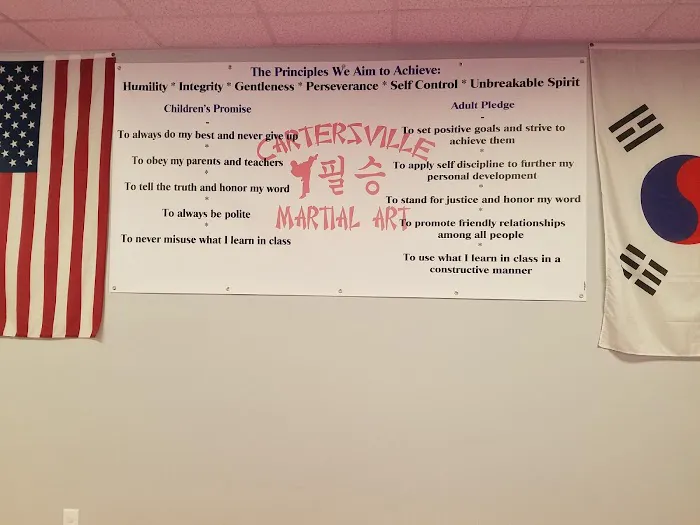 The Principles We Aim to Achieve:
Humility * Integrity * Gentleness * Perseverance * Self Control * Unbreakable Spirit
Children's Promise
-
To always do my best and never give up
*
To obey my parents and teachers
*
To tell the truth and honor my word
*
To always be polite
*
To never misuse what I learn in class
CARTERSVILLE
필 승
MARTIAL ART
Adult Pledge
-
To set positive goals and strive to
achieve them
*
To apply self discipline to further my
personal development
*
To stand for justice and honor my word
*
To promote friendly relationships
among all people
*
To use what I learn in class in a
constructive manner